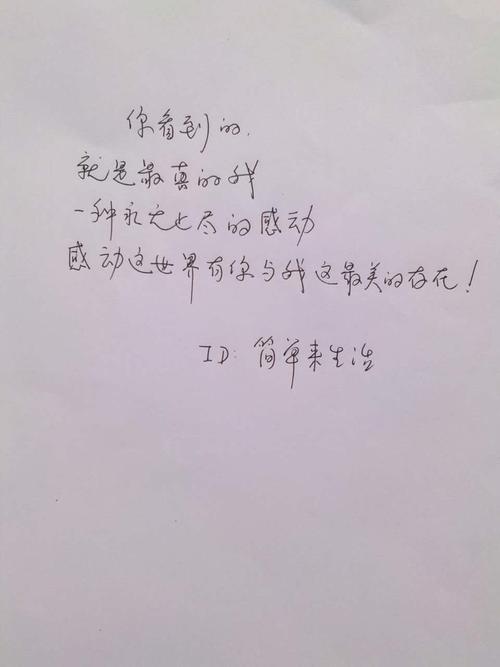 你看到的.
就是最真的我
一种永无止尽的感动
感动这世界有你与我这最美的存在!
ID: 简单来生活